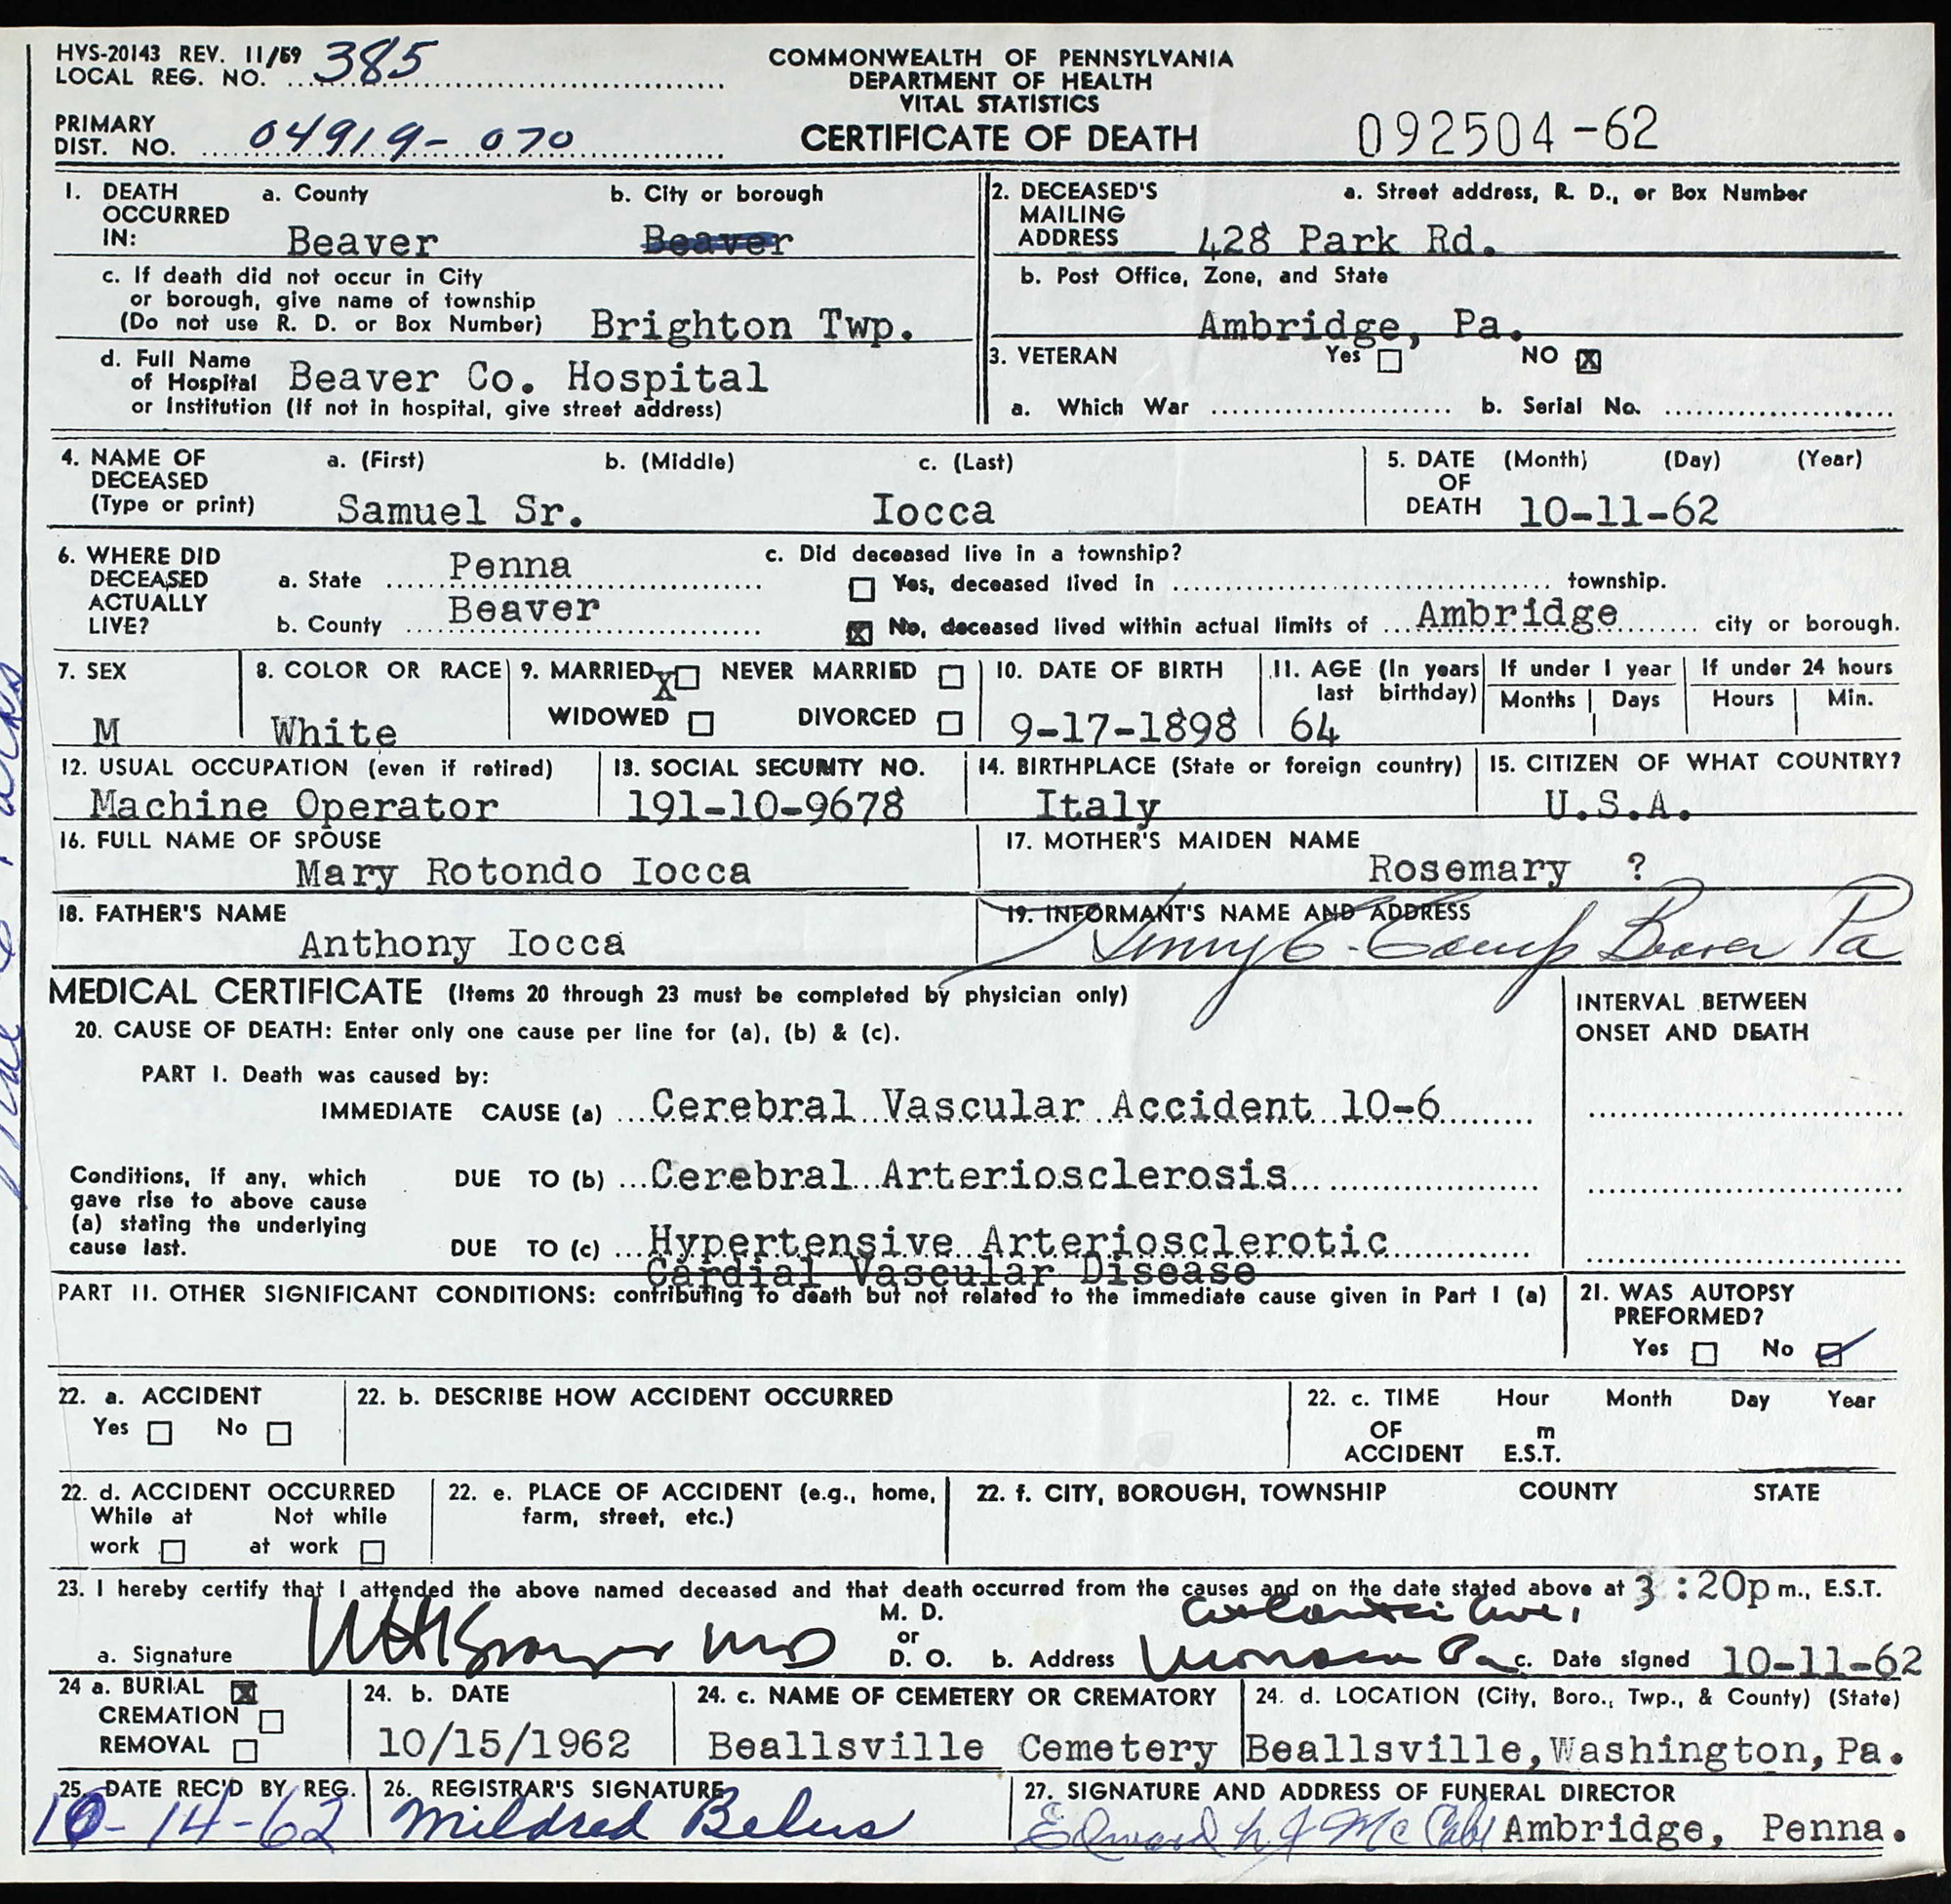 HVS-20143 REV. 11/59
LOCAL REG. NO. 385
COMMONWEALTH OF PENNSYLVANIA
DEPARTMENT OF HEALTH
VITAL STATISTICS
CERTIFICATE OF DEATH
PRIMARY
DIST. NO. 04919-070
092504-62
1. DEATH OCCURRED IN: a. County Beaver b. City or borough Beaver
c. If death did not occur in City
or borough, give name of township
(Do not use R. D. or Box Number) Brighton Twp.
d. Full Name
of Hospital Beaver Co. Hospital
or Institution (If not in hospital, give street address)
2. DECEASED'S MAILING ADDRESS a. Street address, R. D., or Box Number
428 Park Rd.
b. Post Office, Zone, and State
Ambridge, Pa.
3. VETERAN Yes NO X
a. Which War b. Serial No.
4. NAME OF DECEASED (Type or print) a. (First) b. (Middle) c. (Last)
Samuel Sr. Iocca
5. DATE OF DEATH (Month) (Day) (Year)
10-11-62
6. WHERE DID DECEASED ACTUALLY LIVE?
a. State Penna
b. County Beaver
c. Did deceased live in a township?
Yes, deceased lived in township.
X No, deceased lived within actual limits of Ambridge city or borough.
7. SEX
M
8. COLOR OR RACE
White
9. MARRIED X NEVER MARRIED
WIDOWED DIVORCED
10. DATE OF BIRTH
9-17-1898
11. AGE (In years last birthday)
64
If under 1 year
Months Days
If under 24 hours
Hours Min.
12. USUAL OCCUPATION (even if retired)
Machine Operator
13. SOCIAL SECURITY NO.
191-10-9678
14. BIRTHPLACE (State or foreign country)
Italy
15. CITIZEN OF WHAT COUNTRY?
U.S.A.
16. FULL NAME OF SPOUSE
Mary Rotondo Iocca
17. MOTHER'S MAIDEN NAME
Rosemary ?
18. FATHER'S NAME
Anthony Iocca
19. INFORMANT'S NAME AND ADDRESS
Henry C. Camp Beaver Pa
MEDICAL CERTIFICATE (Items 20 through 23 must be completed by physician only)
20. CAUSE OF DEATH: Enter only one cause per line for (a), (b) & (c).
INTERVAL BETWEEN
ONSET AND DEATH
PART I. Death was caused by:
IMMEDIATE CAUSE (a) Cerebral Vascular Accident 10-6
Conditions, if any, which
gave rise to above cause
(a) stating the underlying
cause last.
DUE TO (b) Cerebral Arteriosclerosis
DUE TO (c) Hypertensive Arteriosclerotic
Cardial Vascular Disease
PART II. OTHER SIGNIFICANT CONDITIONS: contributing to death but not related to the immediate cause given in Part I (a)
21. WAS AUTOPSY
PREFORMED?
Yes No
22. a. ACCIDENT
Yes No
22. b. DESCRIBE HOW ACCIDENT OCCURRED
22. c. TIME OF ACCIDENT Hour Month Day Year
m
E.S.T.
22. d. ACCIDENT OCCURRED
While at work Not while at work
22. e. PLACE OF ACCIDENT (e.g., home,
farm, street, etc.)
22. f. CITY, BOROUGH, TOWNSHIP COUNTY STATE
23. I hereby certify that I attended the above named deceased and that death occurred from the causes and on the date stated above at 3:20p m., E.S.T.
a. Signature MD
M. D.
or
D. O.
b. Address Ave. Pa
c. Date signed 10-11-62
24 a. BURIAL X
CREMATION
REMOVAL
24. b. DATE
10/15/1962
24. c. NAME OF CEMETERY OR CREMATORY
Beallsville Cemetery
24. d. LOCATION (City, Boro., Twp., & County) (State)
Beallsville, Washington, Pa.
25. DATE REC'D BY REG.
10-14-62
26. REGISTRAR'S SIGNATURE
Mildred Belus
27. SIGNATURE AND ADDRESS OF FUNERAL DIRECTOR
Edward McCabe Ambridge, Penna.